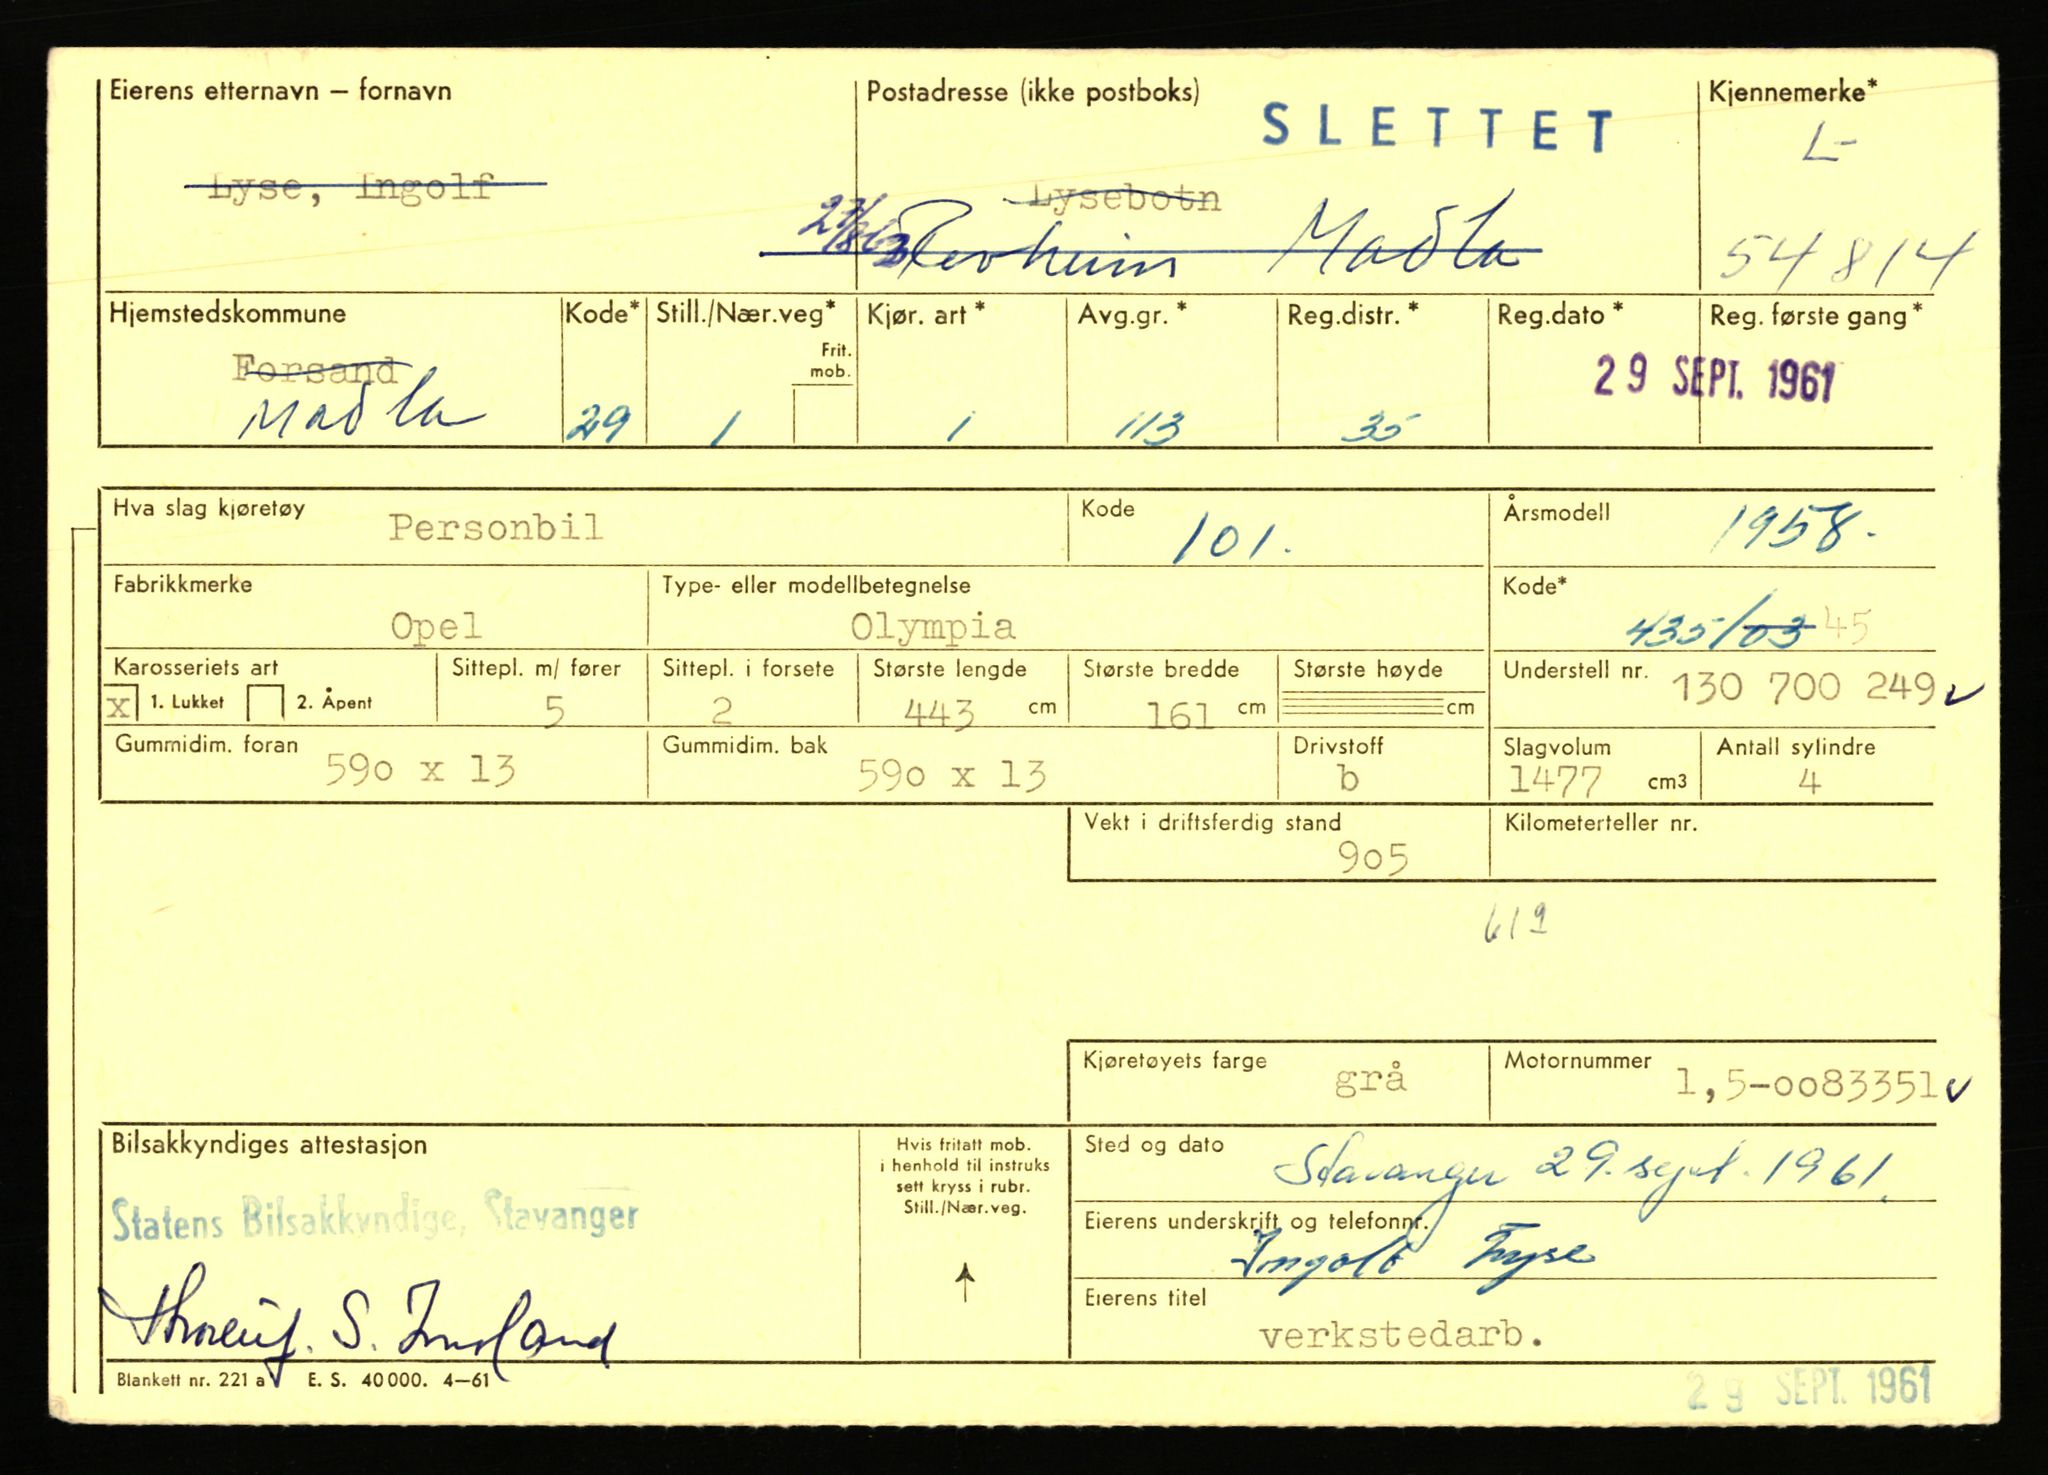 Eierens etternavn – fornavn Postadresse (ikke postboks) Kjennemerke*
SLETTET
L-
Lyse, Ingolf Lysebotn
27/8 63 Revheim Madla 54814
Hjemstedskommune Kode* Still./Nær.veg* Kjør. art* Avg.gr.* Reg.distr.* Reg.dato* Reg. første gang*
Frit. mob.
Forsand 29 SEPT. 1961
Madla 29 1 1 113 35
Hva slag kjøretøy Personbil Kode 101. Årsmodell 1958.
Fabrikkmerke Type- eller modellbetegnelse Kode*
Opel Olympia 435/03 45
Karosseriets art Sittepl. m/ fører Sittepl. i forsete Største lengde Største bredde Største høyde Understell nr. 130 700 249
x 1. Lukket 2. Åpent 5 2 443 cm 161 cm cm
Gummidim. foran Gummidim. bak Drivstoff Slagvolum Antall sylindre
590 x 13 590 x 13 b 1477 cm3 4
Vekt i driftsferdig stand Kilometerteller nr.
905
619
Kjøretøyets farge grå Motornummer 1,5-0083351
Bilsakkyndiges attestasjon Hvis fritatt mob. Sted og dato Stavanger 29. sept. 1961.
i henhold til instruks
sett kryss i rubr.
Still./Nær.veg.
Statens Bilsakkyndige, Stavanger Eierens underskrift og telefonnr.
Ingolf Lyse
S. Eierens titel
verkstedarb.
Blankett nr. 221 a E. S. 40 000. 4–61 29 SEPT. 1961